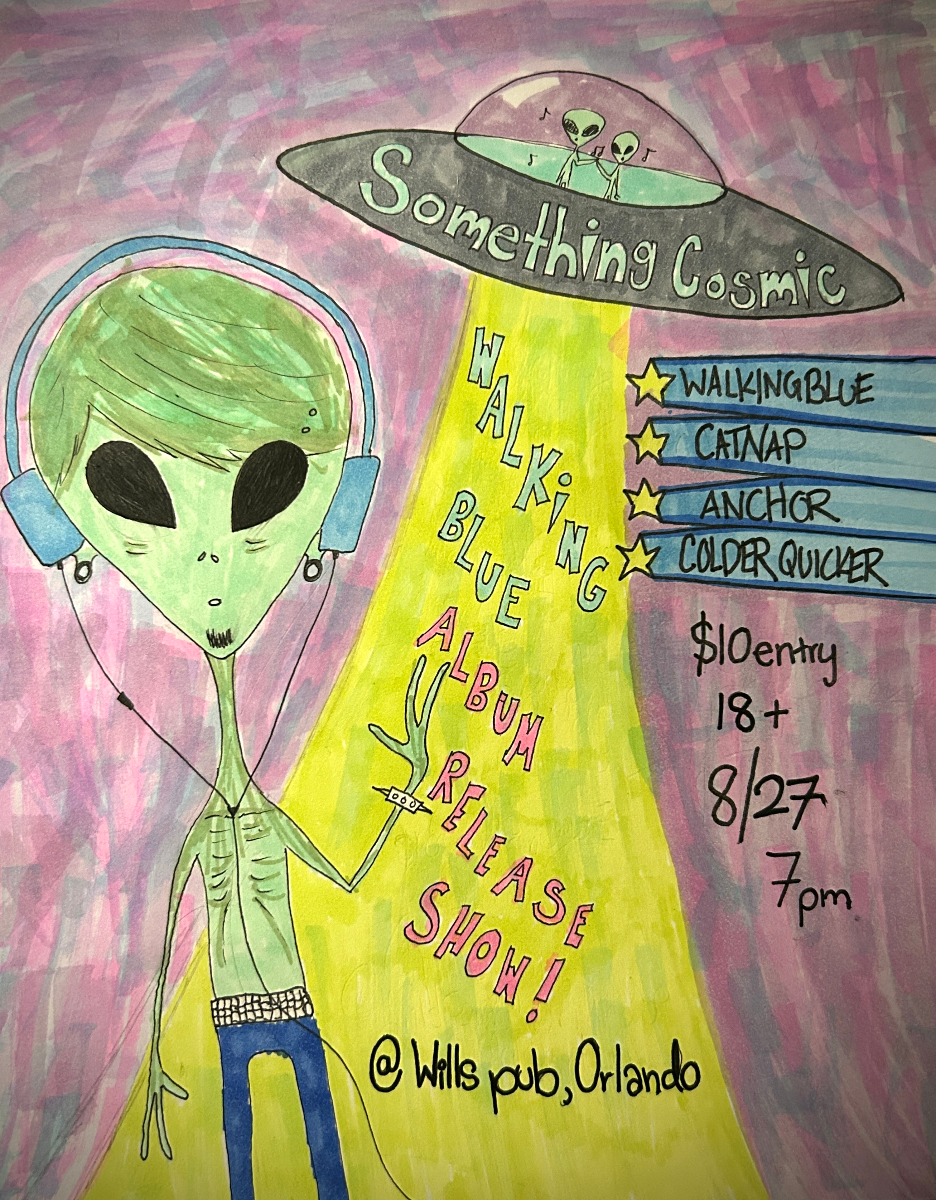 Something Cosmic
WALKiNG
BLUE
ALBUM
RELEASE
SHOW!
WALKINGBLUE
CATNAP
ANCHOR
COLDER QUICKER
$10 entry
18+
8/27
7pm
@ Wills pub, Orlando